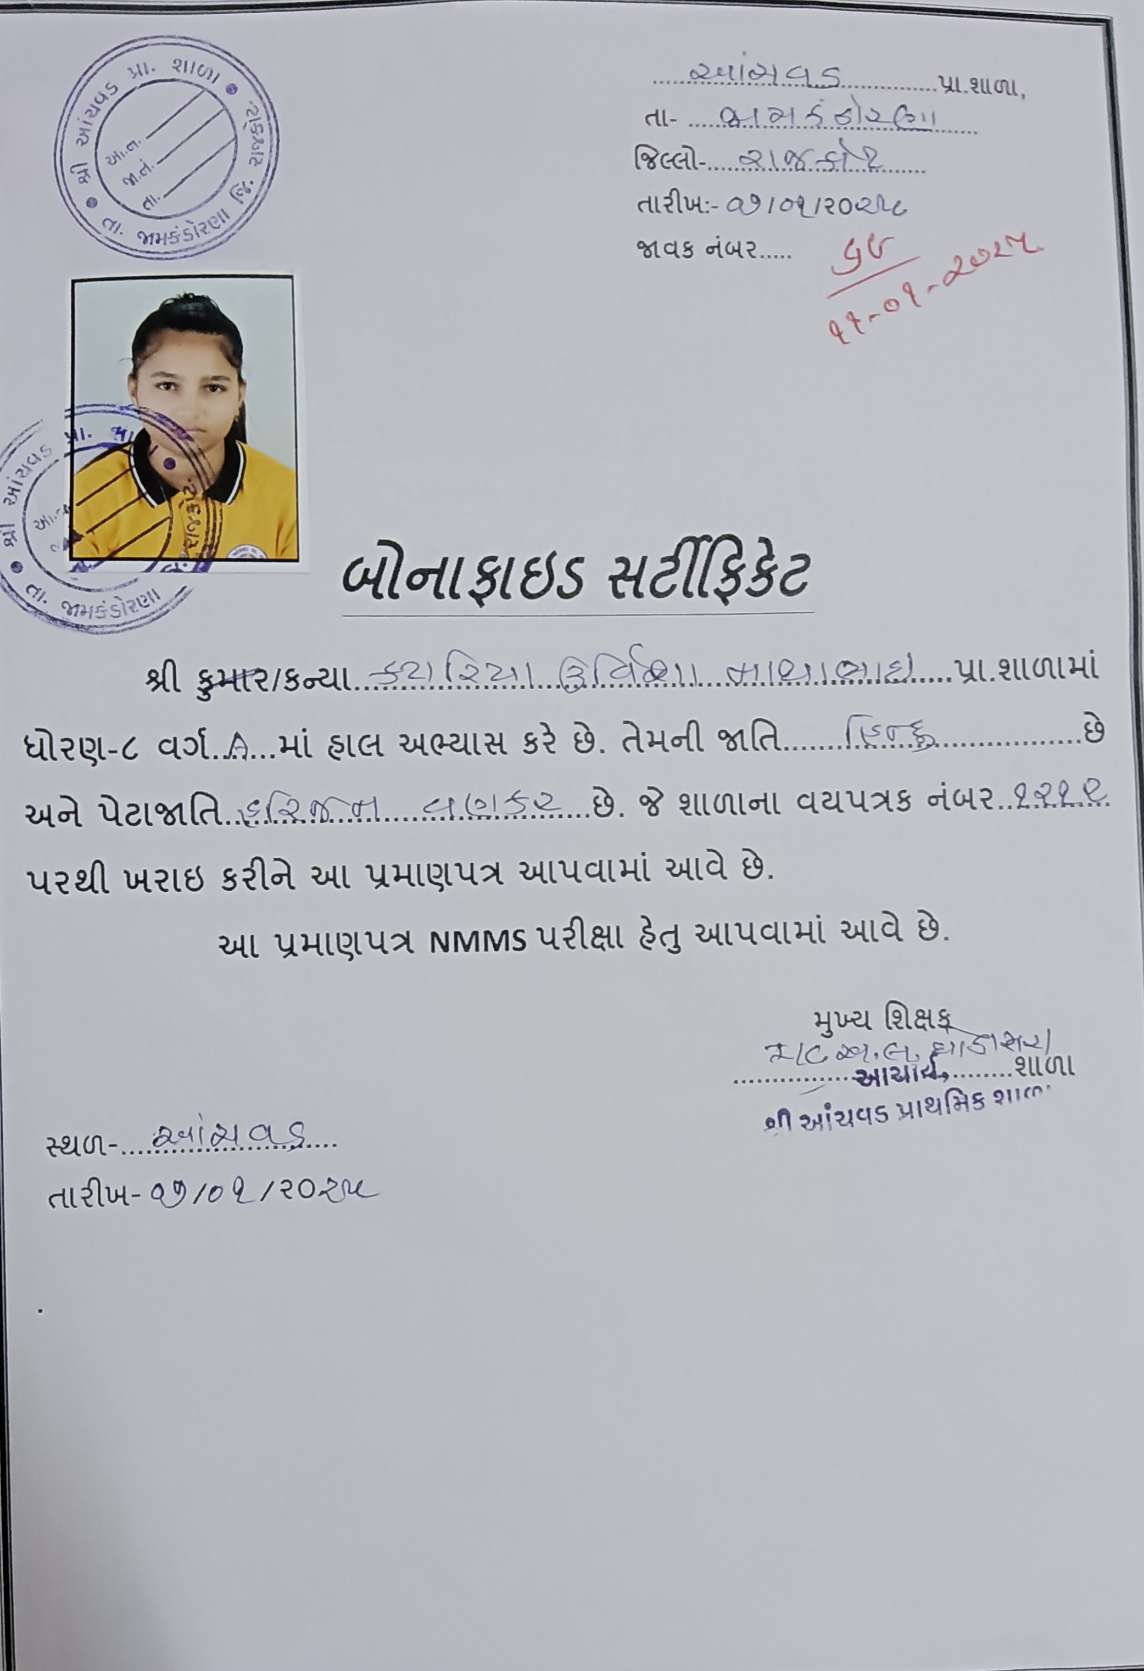 શ્રી આંચવડ પ્રા. શાળા
તા. જામકંડોરણા જિ. રાજકોટ
આ.ન.
જા.નં.
તા.
આંચવડ પ્રા.શાળા,
તા- જામકંડોરણા
જિલ્લો- રાજકોટ
તારીખ:- ૦૭/૦૧/૨૦૨૫
જાવક નંબર.....
૧૧-૦૧-૨૦૨૫
શ્રી આંચવડ પ્રા.
આ.ન.
તા. જામકંડોરણા
બોનાફાઇડ સર્ટીફિકેટ
શ્રી કુમાર/કન્યા કટારિયા ઉર્વિશા નાથાભાઇ પ્રા.શાળામાં
ધોરણ-૮ વર્ગ..A...માં હાલ અભ્યાસ કરે છે. તેમની જાતિ હિન્દુ છે
અને પેટાજાતિ હરિજન વણકર છે. જે શાળાના વયપત્રક નંબર ૧૨૧૯
પરથી ખરાઇ કરીને આ પ્રમાણપત્ર આપવામાં આવે છે.
આ પ્રમાણપત્ર NMMS પરીક્ષા હેતુ આપવામાં આવે છે.
મુખ્ય શિક્ષક
આચાર્ય, શાળા
શ્રી આંચવડ પ્રાથમિક શાળા
સ્થળ- આંચવડ
તારીખ- ૦૭/૦૧/૨૦૨૫